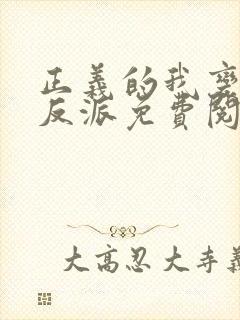 正義的我變
反派免費閱
大高忍大寺義